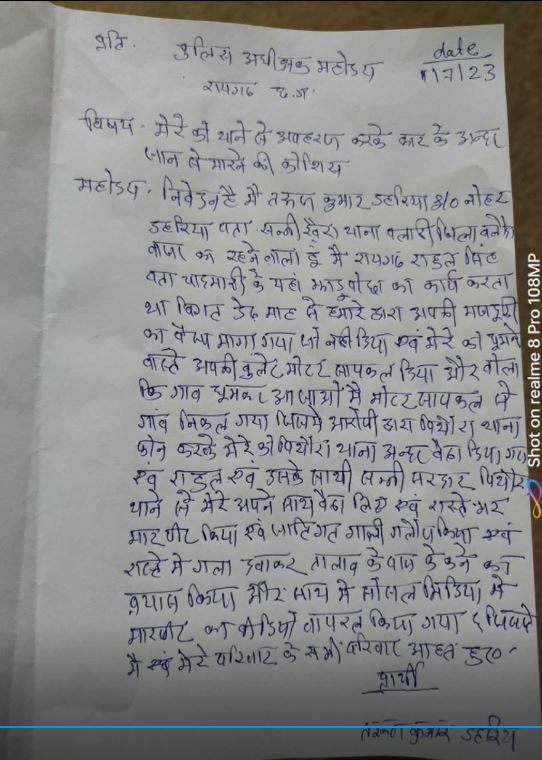 प्रति.
पुलिस अधीक्षक महोदय
रायगढ़ छ.ग.
date
1/7/23
विषय - मेरे को थाने से अपहरण करके कार के अन्दर
जान से मारने की कोशिश
महोदय. निवेदन है मै तरुण कुमार डहरिया s/o
डहरिया पता थाना पलारी जिला
का रहने वाला हूं मै रायगढ़ राहुल सिंह
पता चांदमारी के यहां झाडू पोछा का कार्य करता
था विगत डेढ माह से हमारे द्वारा अपनी मजदूरी
का पैसा मागा गया जो नही दिया एवं मेरे को घुमने
वास्ते अपनी बुलेट मोटर सायकल दिया और बोला
कि गाव घुमकर आ जाओ मै मोटर सायकल से
गांव निकल गया जिसमे आरोपी द्वारा पिथौरा थाना
फोन करके मेरे को पिथौरा थाना अन्दर बैठा दिया गया
एवं राहुल एवं उसके साथी पिथौरा
थाने से मेरे अपने साथ बैठा लिए एवं रास्ते भर
मारपीट किया एवं जातिगत गाली गलौच किया एवं
रास्ते मे गला दबाकर तालाब के पास फेकने का
प्रयास किया और साथ मे सोसल मिडिया मे
मारपीट का वीडियो वायरल किया गया जिससे
मै एवं मेरे परिवार के सभी परिवार आहत हुए
प्रार्थी
तरूण कुमार डहरिया
Shot on realme 8 Pro 108MP